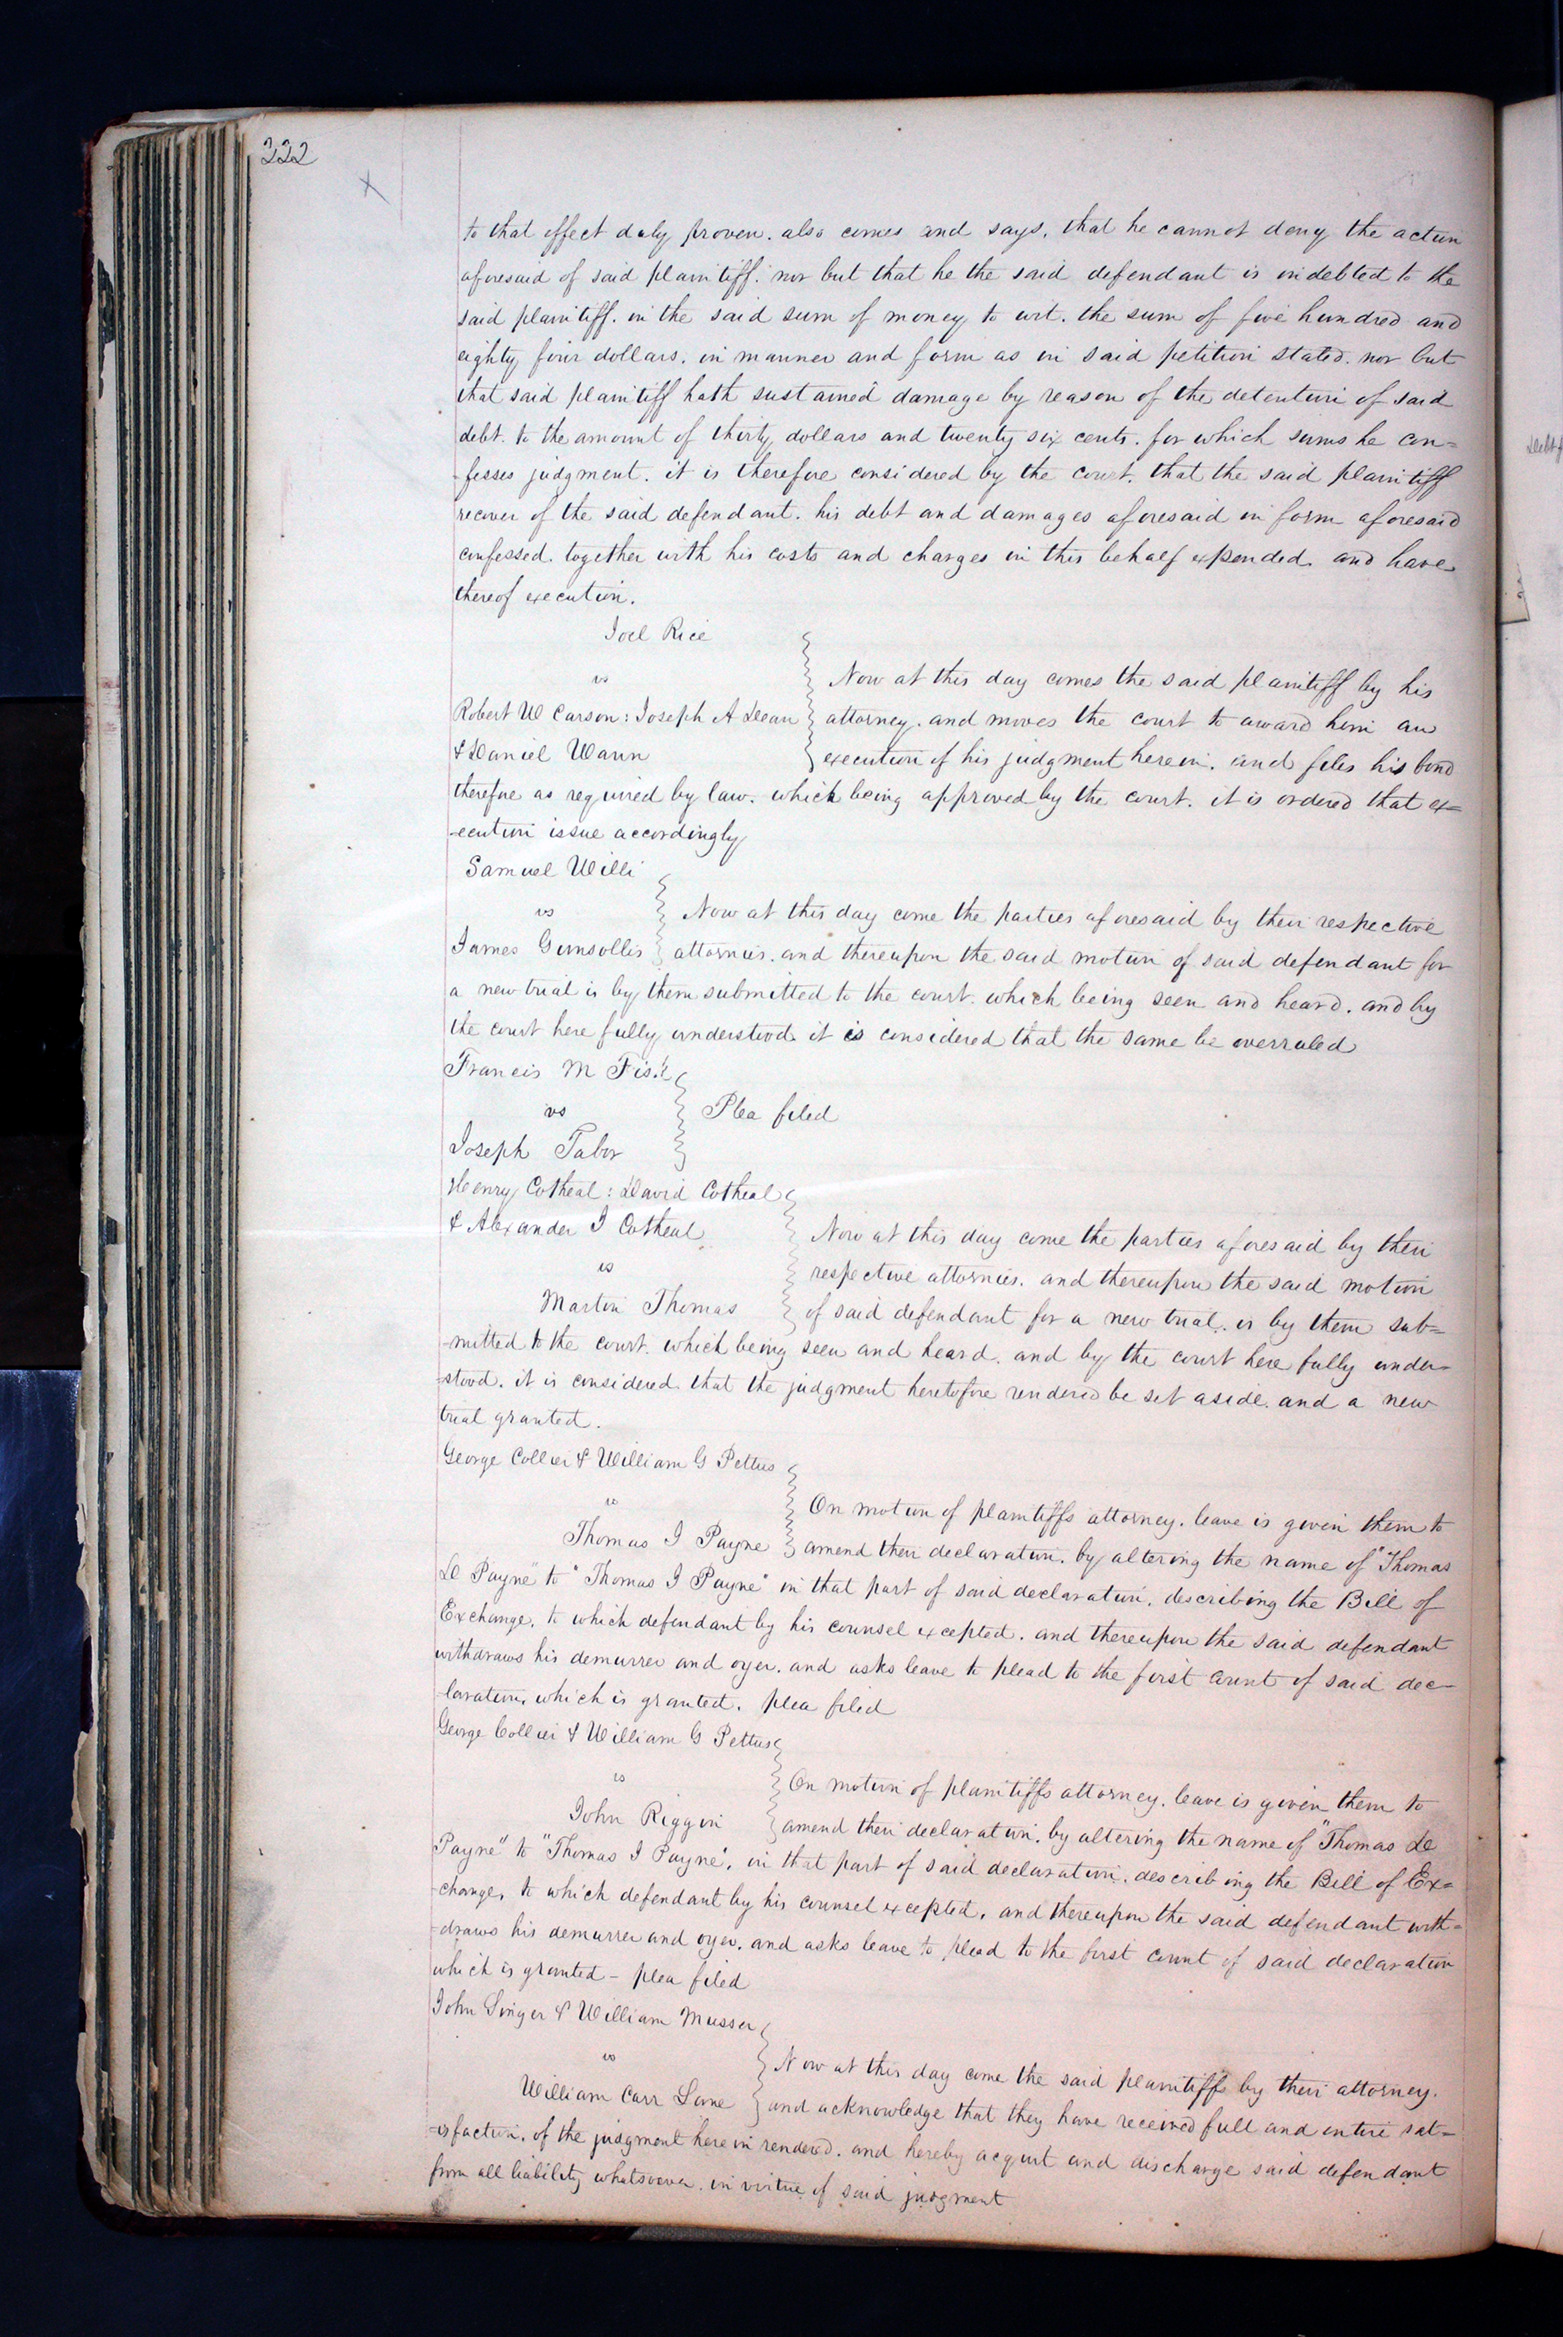 222
to that effect duly proven. also comes and says, that he cannot deny the action
aforesaid of said plaintiff. nor but that he the said defendant is indebted to the
said plaintiff. in the said sum of money to wit. the sum of five hundred and
eighty four dollars. in manner and form as in said petition stated. nor but
that said plaintiff hath sustained damage by reason of the detention of said
debt. to the amount of thirty dollars and twenty six cents. for which sums he con=
-fesses judgment. it is therefore considered by the court. that the said plaintiff
recover of the said defendant. his debt and damages aforesaid in form aforesaid
confessed. together with his costs and charges in this behalf expended. and have
thereof execution.
Joel Rice
vs
Robert W Carson: Joseph A Dean
& Daniel Wann
Now at this day comes the said plaintiff by his
attorney. and moves the court to award him an
execution of his judgment herein. and files his bond
therefore as required by law. which being approved by the court. it is ordered that ex=
-ecution issue accordingly
Samuel Willi
vs
James Gunsollis
Now at this day come the parties aforesaid by their respective
attornies. and thereupon the said motion of said defendant for
a new trial is by them submitted to the court. which being seen and heard. and by
the court here fully understood. it is considered that the same be overruled
Francis M
vs
Joseph Tabor
Plea filed
Henry Cotheal: David Cotheal
& Alexander I Cotheal
vs
Martin Thomas
Now at this day come the parties aforesaid by their
respective attornies. and thereupon the said motion
of said defendant for a new trial. is by them sub=
-mitted to the court. which being seen and heard. and by the court here fully under-
-stood. it is considered. that the judgment heretofore rendered be set aside. and a new
trial granted.
George Collier & William G Pettus
vs
Thomas I Payne
On motion of plaintiffs attorney. leave is given them to
amend their declaration. by altering the name of "Thomas
D Payne" to "Thomas I Payne" in that part of said declaration. describing the Bill of
Exchange. to which defendant by his counsel excepted. and thereupon the said defendant
withdraws his demurrer and oyer. and asks leave to plead to the first count of said dec-
-laration. which is granted. plea filed
George Collier & William G Pettus
vs
John Riggin
On motion of plaintiffs attorney. leave is given them to
amend their declaration. by altering the name of "Thomas D
Payne" to "Thomas I Payne". in that part of said declaration. describing the Bill of Ex=
-change. to which defendant by his counsel excepted. and thereupon the said defendant with=
-draws his demurrer and oyer. and asks leave to plead to the first count of said declaration
which is granted - plea filed
John Singer & William Musser
vs
William Carr Lane
Now at this day come the said plaintiffs by their attorney.
and acknowledge that they have received full and entire sat=
-isfaction. of the judgment herein rendered. and hereby acquit and discharge said defendant
from all liability whatsoever. in virtue of said judgment